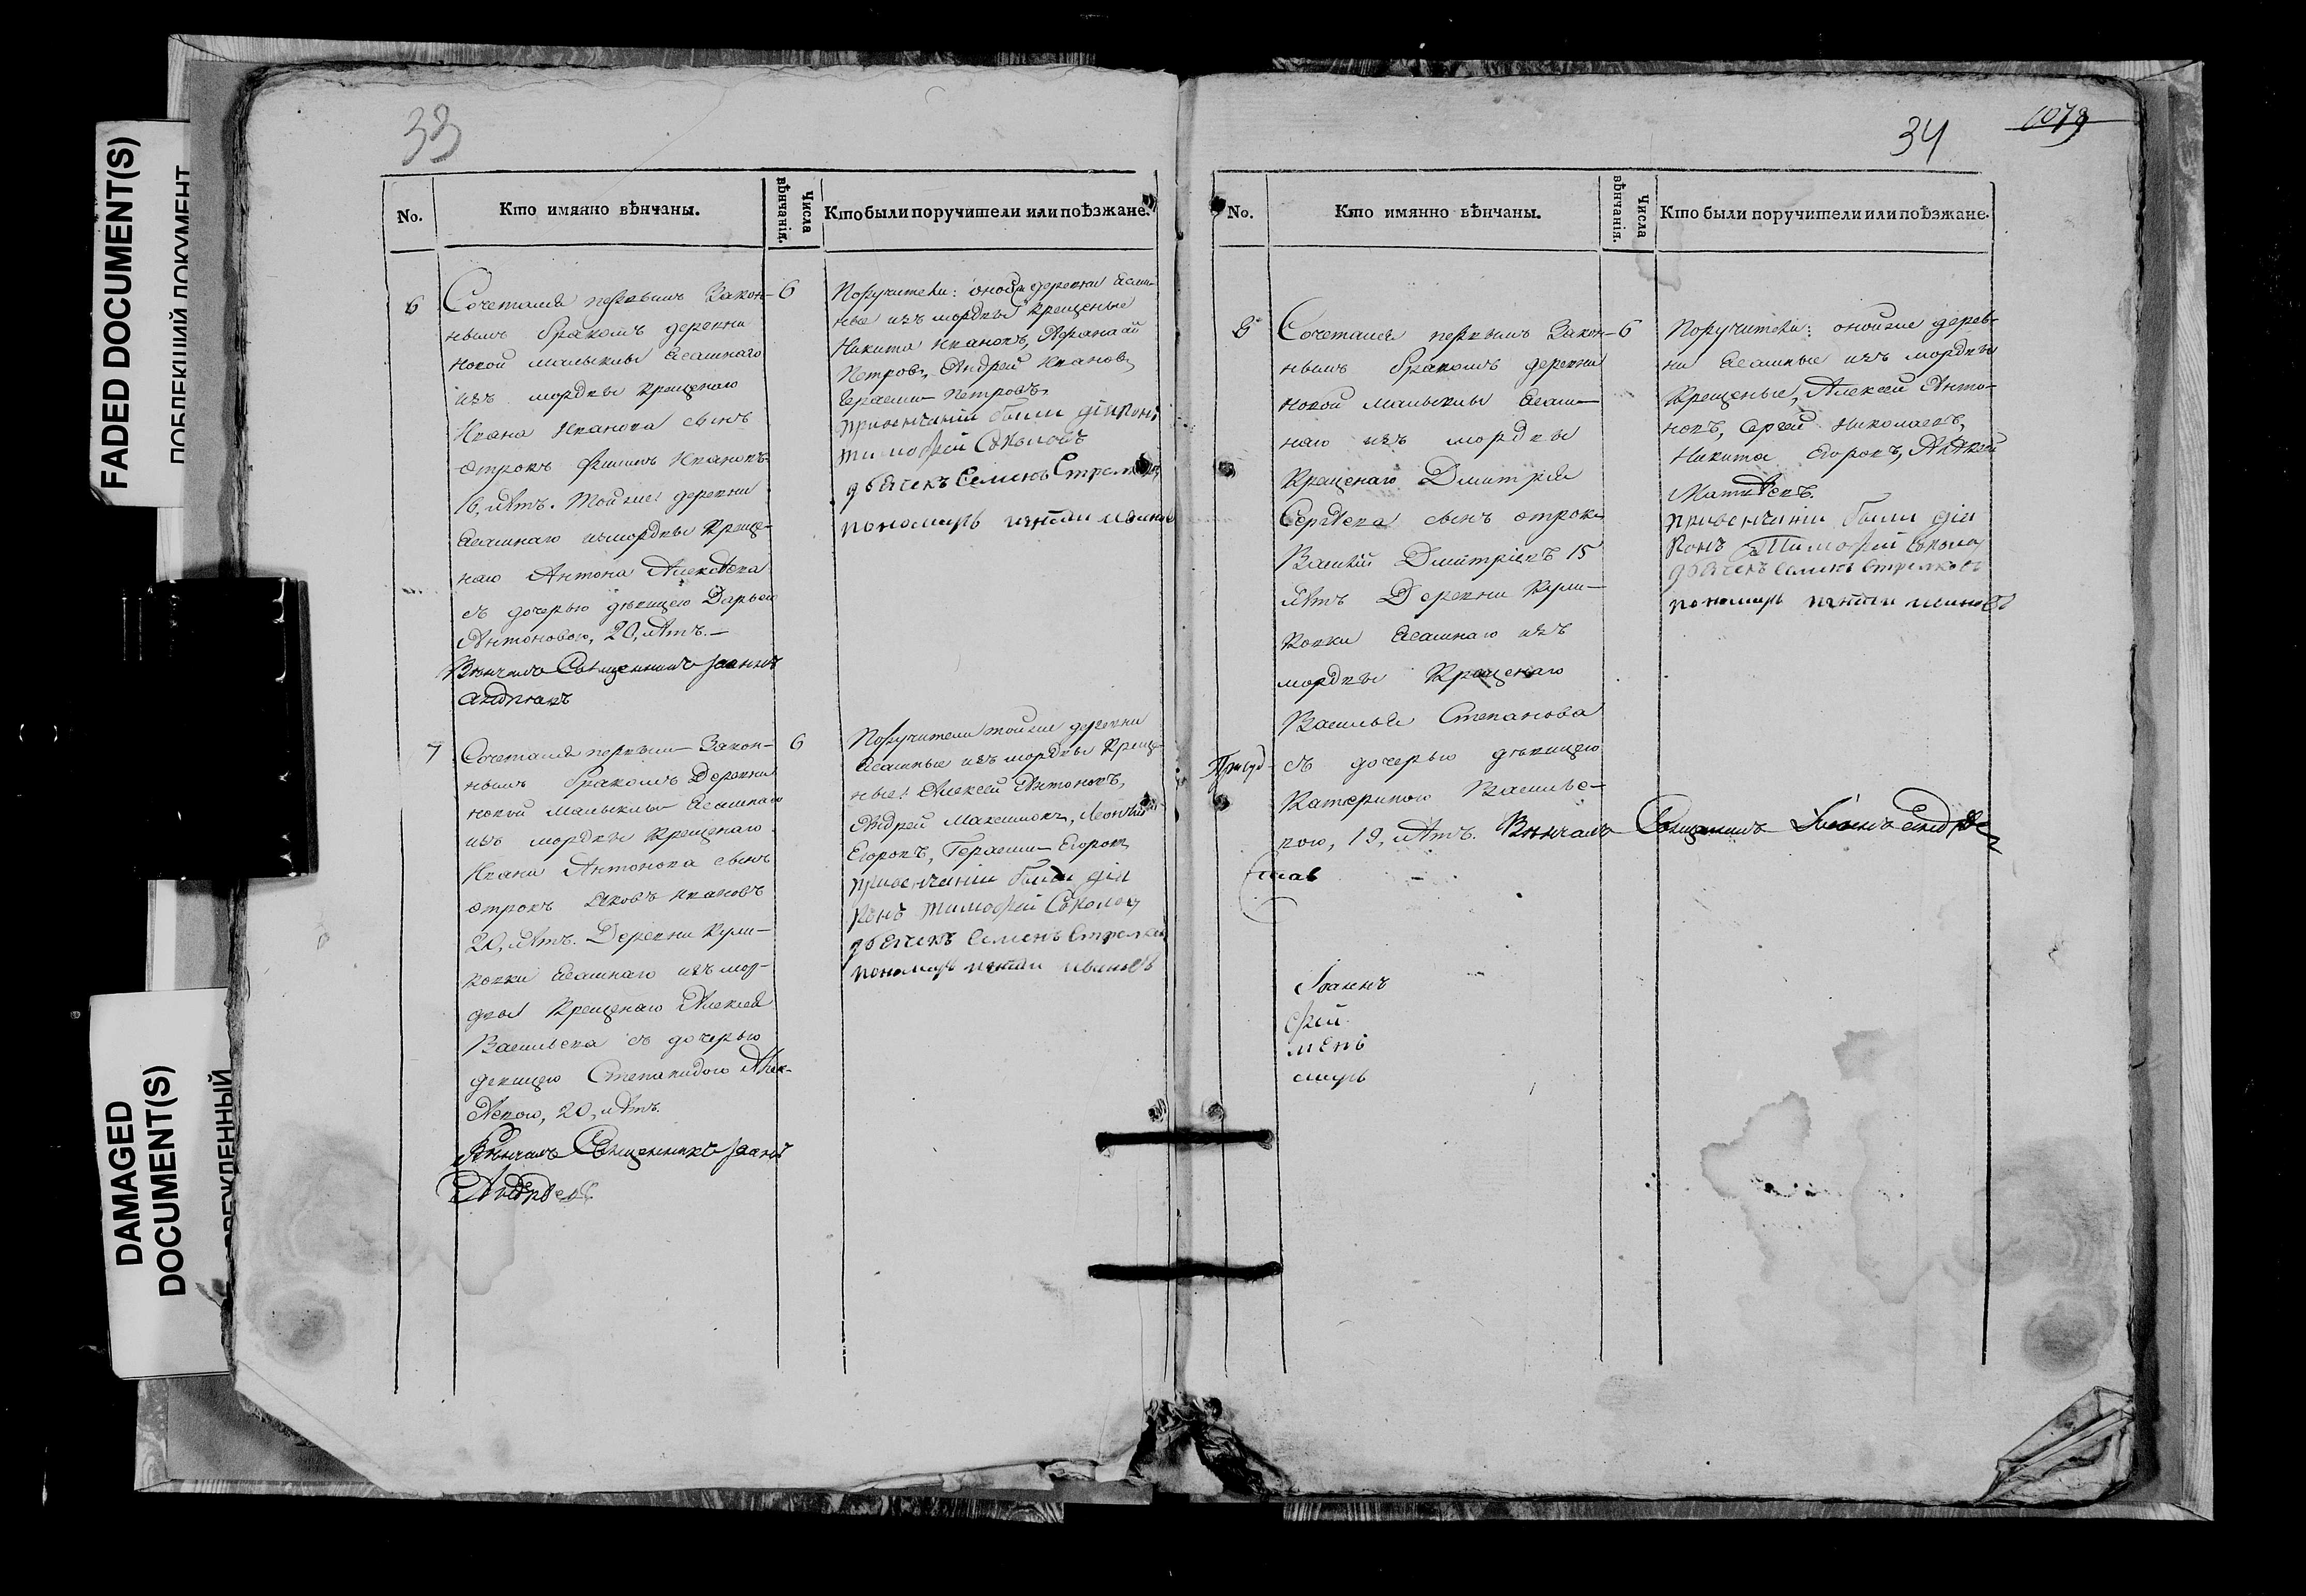 FADED DOCUMENT(S)
ПОБЛЕКШИЙ ДОКУМЕНТ
DAMAGED
DOCUMENT(S)
33
No.
Кто имянно вѣнчаны.
Числа
вѣнчанія.
Кто были поручители или поѣзжане.
6
Сочетался первымъ закон-
нымъ бракомъ деревни
новой малыклы ясашнаго
изъ мордвы крещенаго
Ивана Иванова сынъ
отрокъ Ивановъ
16, лѣтъ. Той же деревни
ясашнаго измордвы креще-
наго Антона Алексѣева
съ дочерью дѣвицею Дарьею
Антоновою, 20, лѣтъ.
Вѣнчалъ Священникъ Іоаннъ
Андреевъ
6
Поручители: оной деревни ясаш-
ные изъ мордвы крещеные
Никита Ивановъ,
Петровъ, Андрей Ивановъ,
Петровъ.
привенчаніи были діяконъ
тимофей Соколовъ
дьячекъ Семенъ Стрелковъ
пономарь
7
Сочетался первымъ закон-
нымъ бракомъ Деревни
новой малыклы ясашнаго
изъ мордвы крещенаго
Ивана Антонова сынъ
отрокъ Яковъ Ивановъ
20, лѣтъ. Деревни Кули-
ковки ясашнаго изъ мор-
двы крещенаго Алексея
Васильева съ дочерью
девицею Степанидою Алек-
сѣевою, 20, лѣтъ.
Вѣнчалъ Священникъ Іоаннъ
Андреевъ
6
Поручители той же деревни
ясашные изъ мордвы креще-
ные: Алексей Антоновъ,
Андрей Максимовъ, Леонтій
Егоровъ, Герасим Егоровъ,
привенчаніи были дія
конъ тимофей Соколовъ
дьячекъ Семенъ Стрелковъ
пономарь
34
1079
No.
Кто имянно вѣнчаны.
Числа
вѣнчанія.
Кто были поручители или поѣзжане.
Сочетался первымъ закон-
нымъ бракомъ деревни
новой малыклы ясаш-
наго изъ мордвы
крещенаго Дмитрія
Сергѣева сынъ отрокъ
Василій Дмитріевъ 15
лѣтъ Деревни Кули-
ковки ясашнаго изъ
мордвы крещенаго
Василья Степанова
съ дочерью дѣвицею
Катериною Василье-
вою, 19, лѣтъ. Вѣнчалъ Священникъ Іоаннъ Андреев
6
Поручители: оной же дерев-
ни ясашные изъ мордвы
крещеные, Алексей Анто-
новъ, Сергей Николаевъ,
Никита Егоровъ,
Матвѣевъ.
привенчаніи были дія
конъ Тимофей Соколов
дьячекъ Семенъ Стрелковъ
пономарь
Іоаннъ
фей
менъ
марь